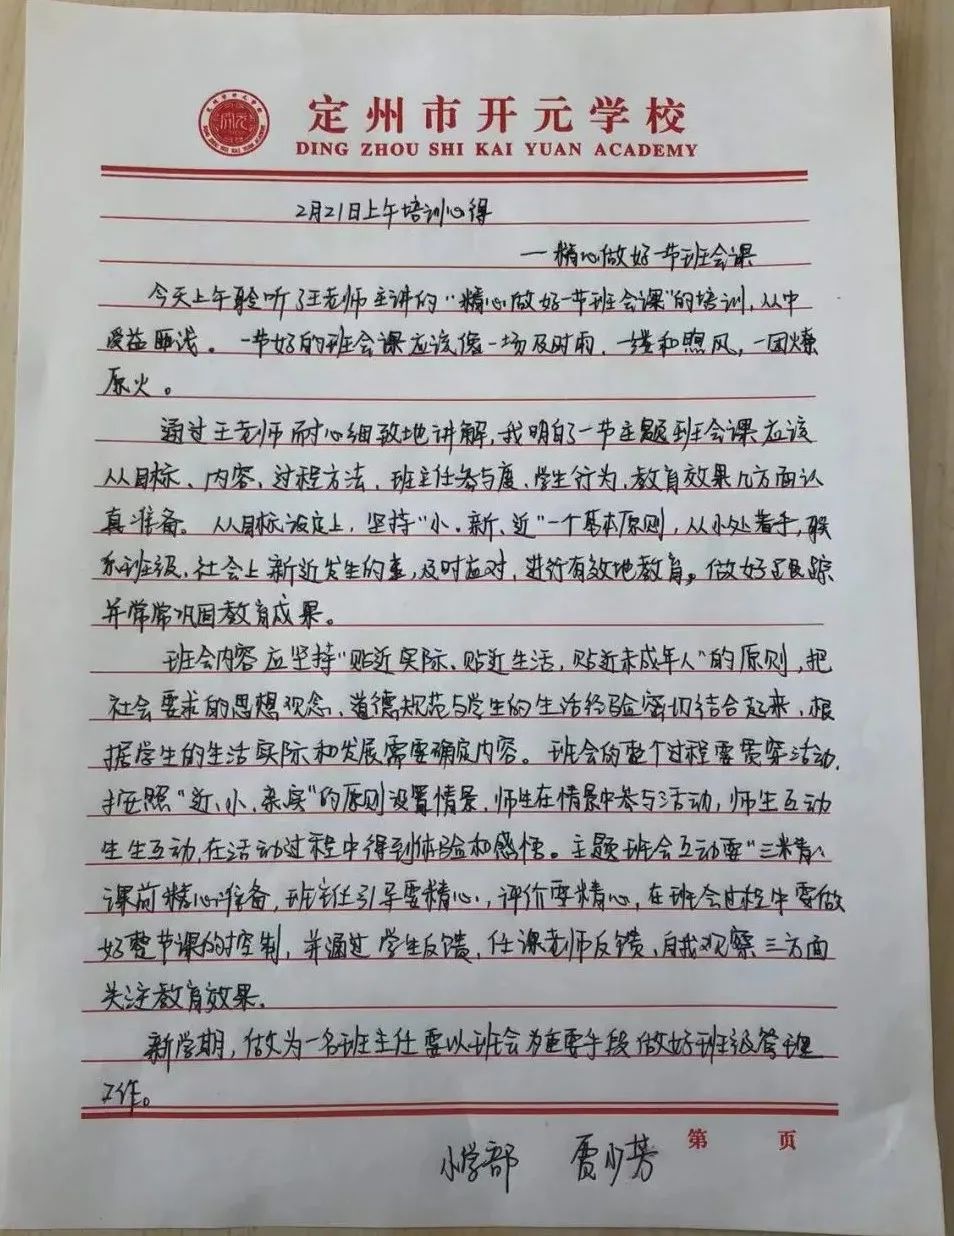 定州市开元学校
DING ZHOU SHI KAI YUAN ACADEMY
2月21日上午培训心得
—精心做好一节班会课
今天上午聆听了王老师主讲的“精心做好一节班会课”的培训,从中
受益匪浅。一节好的班会课应该像一场及时雨,一缕和煦风,一团燎
原火。
通过王老师耐心细致地讲解,我明白了一节主题班会课应该
从目标、内容,过程方法,班主任参与度,学生行为,教育效果几方面认
真准备。从目标设定上,坚持“小、新、近”一个基本原则,从小处着手,联
系班级,社会上新近发生的事,及时应对,进行有效地教育。做好跟踪
并常常巩固教育成果。
班会内容应坚持“贴近实际、贴近生活,贴近未成年人”的原则,把
社会要求的思想观念、道德规范与学生的生活经验密切结合起来,根
据学生的生活实际和发展需要确定内容。班会的整个过程要贯穿活动,
按照“近、小、亲、实”的原则设置情景,师生在情景中参与活动,师生互动
生生互动,在活动过程中得到体验和感悟。主题班会互动要“三精心
课前精心准备,班主任引导要精心,评价要精心,在班会过程中要做
好整节课的控制,并通过学生反馈,任课老师反馈,自我观察三方面
关注教育效果.
新学期,做为一名班主任要以班会为重要手段做好班级管理
工作。
第 页
小学部 贾少芳